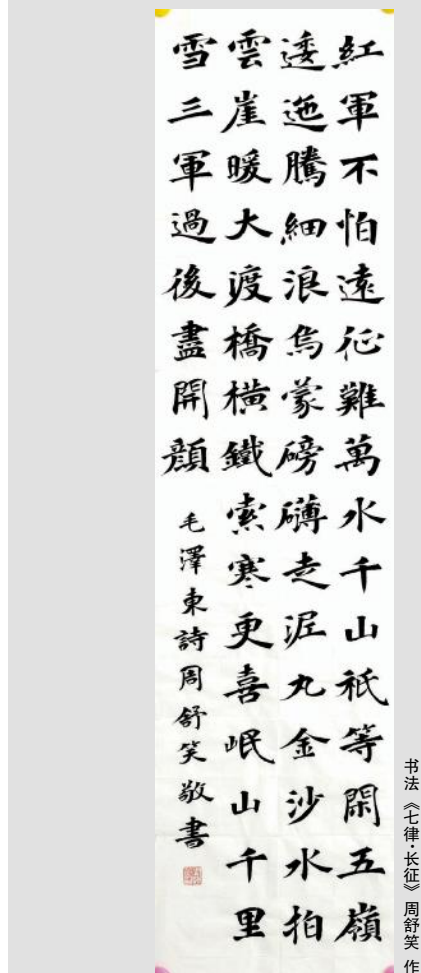 紅軍不怕遠征難萬水千山祇等閑五嶺
逶迤騰細浪烏蒙磅礴走泥丸金沙水拍
雲崖暖大渡橋橫鐵索寒更喜岷山千里
雪三軍過後盡開顏
毛澤東詩周舒笑敬書
书法《七律·长征》周舒笑 作